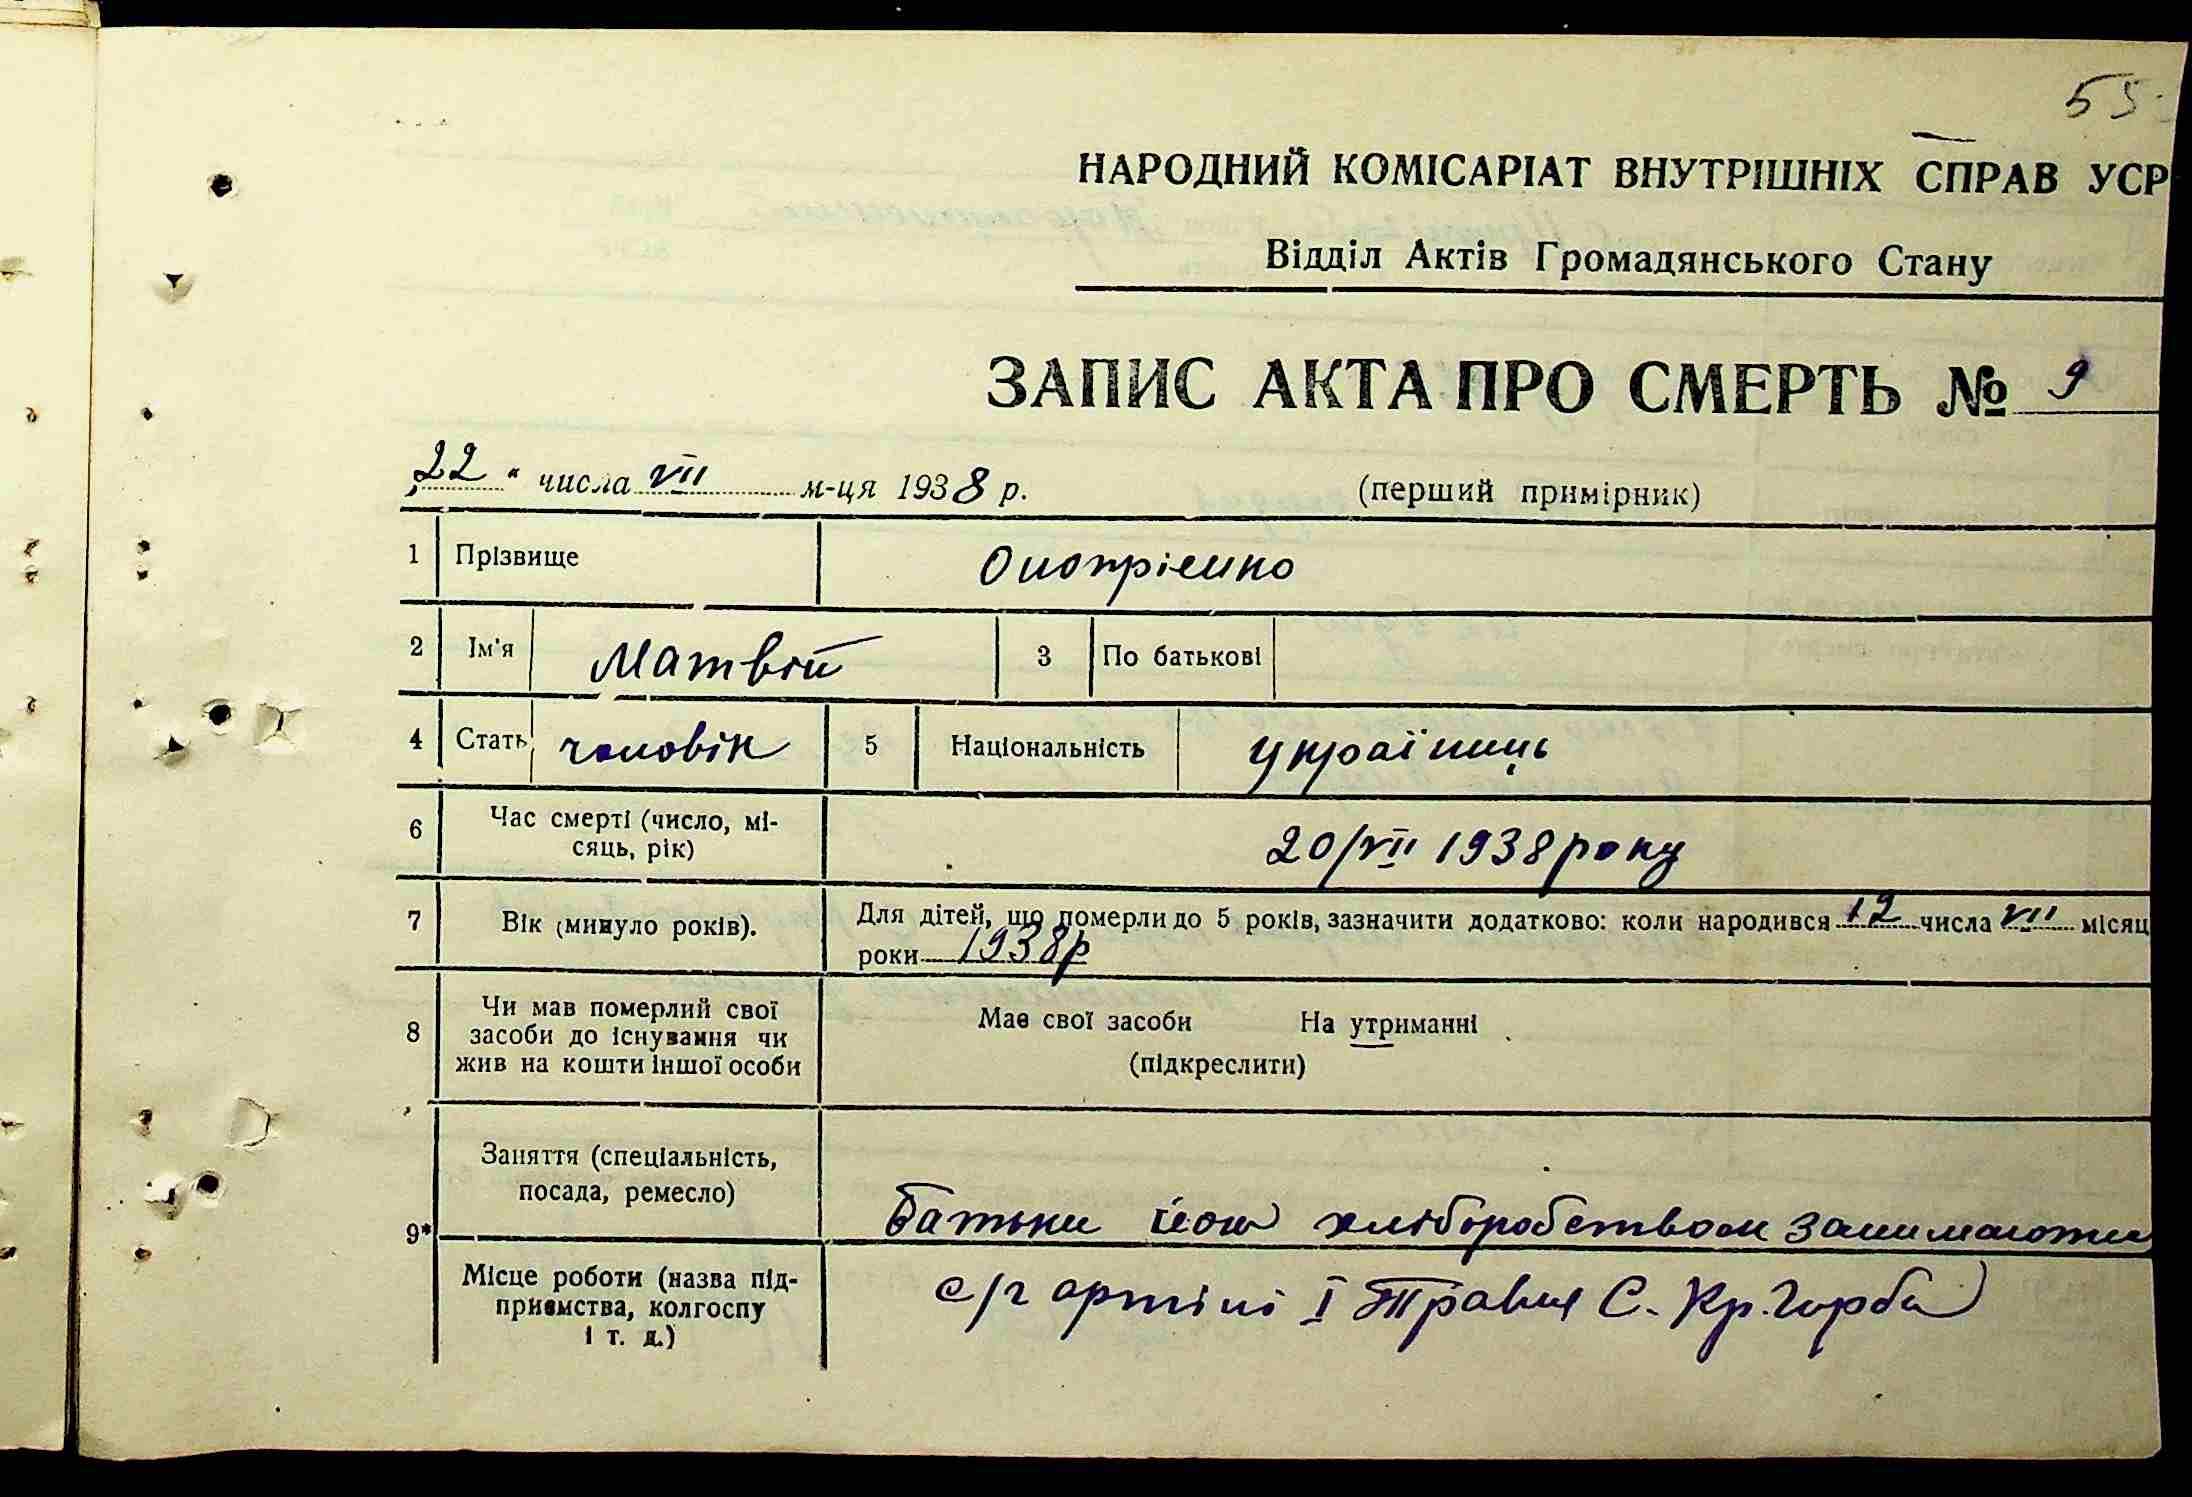 55
НАРОДНИЙ КОМІСАРІАТ ВНУТРІШНІХ СПРАВ УСР
Відділ Актів Громадянського Стану
ЗАПИС АКТА ПРО СМЕРТЬ № 9
„22“ числа VII м-ця 1938 р. (перший примірник)
1 Прізвище Онопрієнко
2 Ім'я Матвій 3 По батькові
4 Стать чоловік 5 Національність українець
6 Час смерті (число, мі-
сяць, рік)
20/VII 1938 року
7 Вік (минуло років). Для дітей, що померли до 5 років, зазначити додатково: коли народився 12 числа VII місяц
роки 1938р
8 Чи мав померлий свої
засоби до існування чи
жив на кошти іншої особи
Має свої засоби На утриманні
(підкреслити)
9*
Заняття (спеціальність,
посада, ремесло)
Батьки його хліборобством
Місце роботи (назва під-
приємства, колгоспу
і т. д.)
с/г артілі I Травня С. Кр.